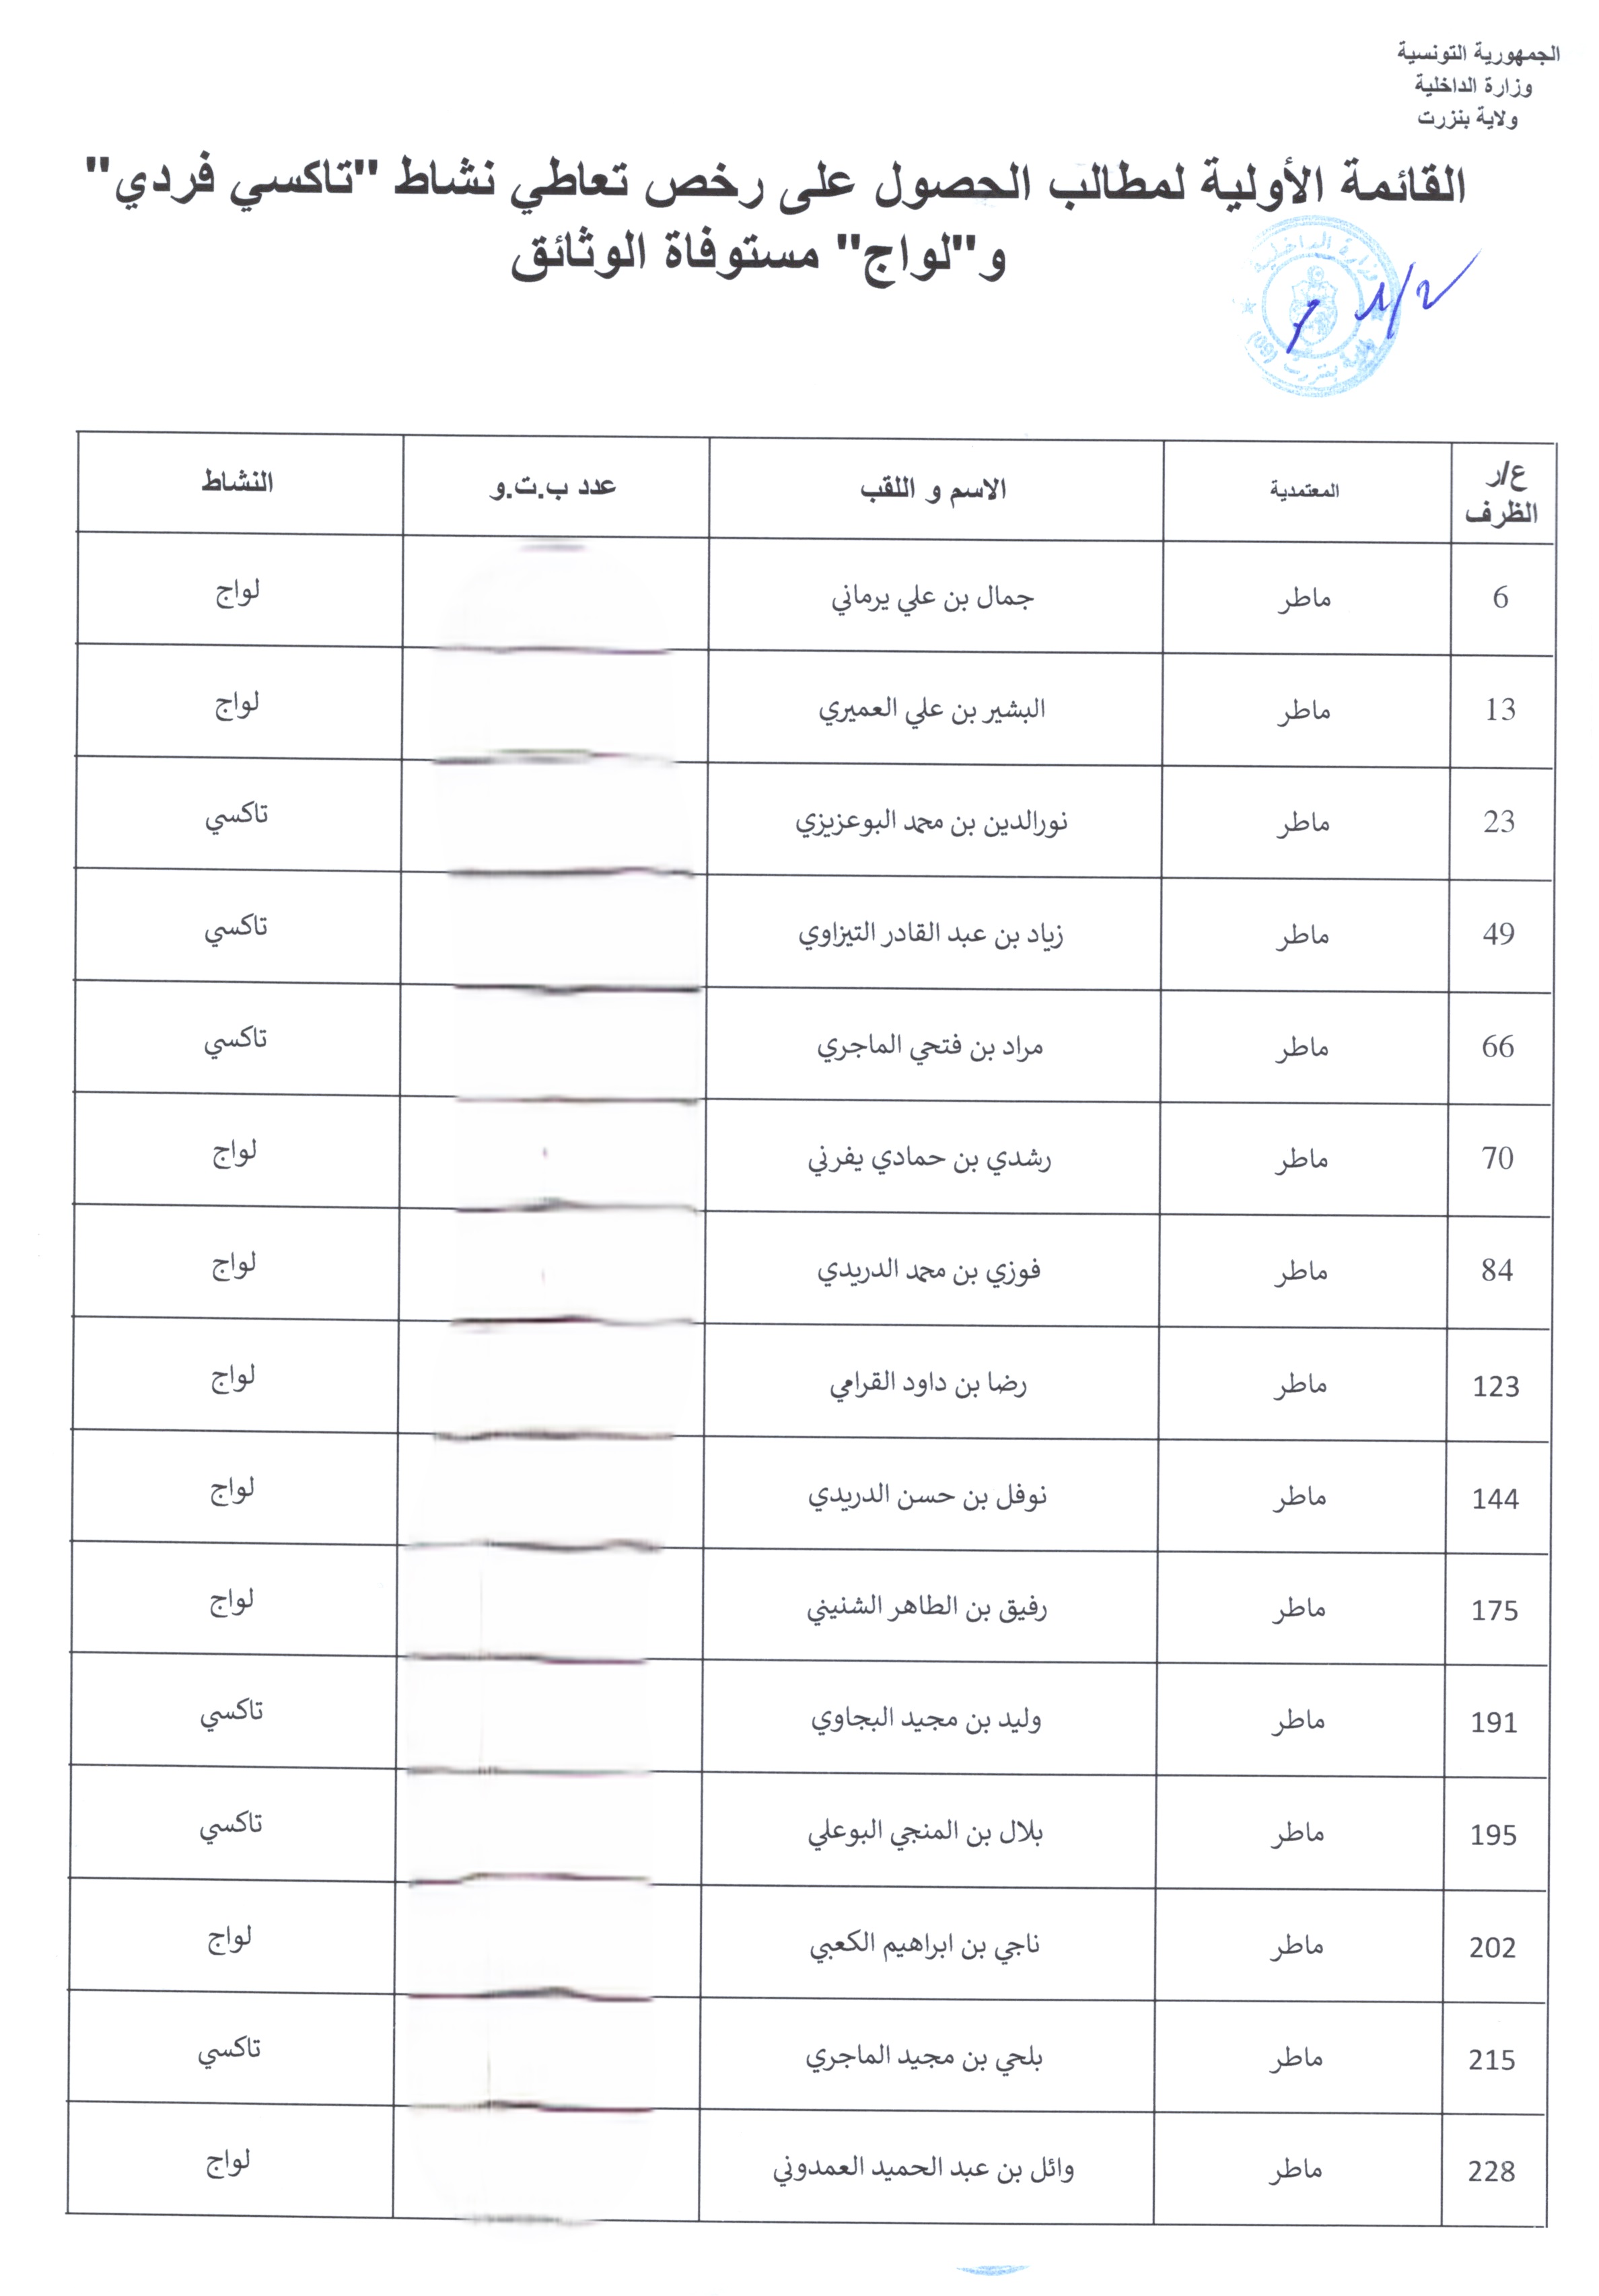 الجمهورية التونسية
وزارة الداخلية
ولاية بنزرت
القائمة الأولية لمطالب الحصول على رخص تعاطي نشاط "تاكسي فردي"
و"لواج" مستوفاة الوثائق
وزارة الداخلية
ولاية بنزرت (09)
ع/ر الظرف المعتمدية الاسم و اللقب عدد ب.ت.و النشاط
6 ماطر جمال بن علي يرماني لواج
13 ماطر البشير بن علي العميري لواج
23 ماطر نورالدين بن محمد البوعزيزي تاكسي
49 ماطر زياد بن عبد القادر التيزاوي تاكسي
66 ماطر مراد بن فتحي الماجري تاكسي
70 ماطر رشدي بن حمادي يفرني لواج
84 ماطر فوزي بن محمد الدريدي لواج
123 ماطر رضا بن داود القرامي لواج
144 ماطر نوفل بن حسن الدريدي لواج
175 ماطر رفيق بن الطاهر الشنيني لواج
191 ماطر وليد بن مجيد البجاوي تاكسي
195 ماطر بلال بن المنجي البوعلي تاكسي
202 ماطر ناجي بن ابراهيم الكعبي لواج
215 ماطر بلحي بن مجيد الماجري تاكسي
228 ماطر وائل بن عبد الحميد العمدوني لواج